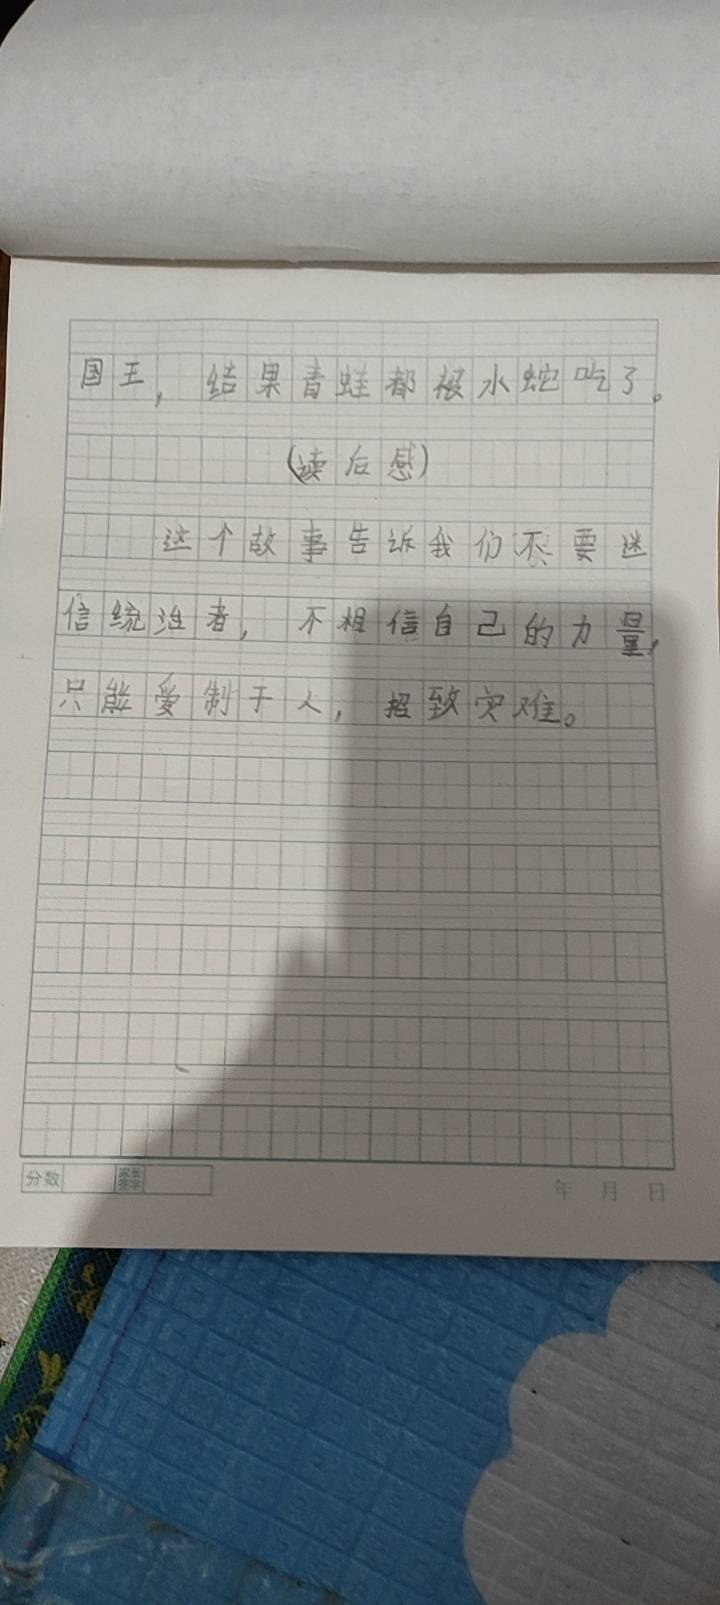 国王，结果青蛙都被水蛇吃了。
(读后感)
这个故事告诉我们不要迷
信统治者，不相信自己的力量，
只能受制于人，招致灾难。
分数 家长签字 年 月 日